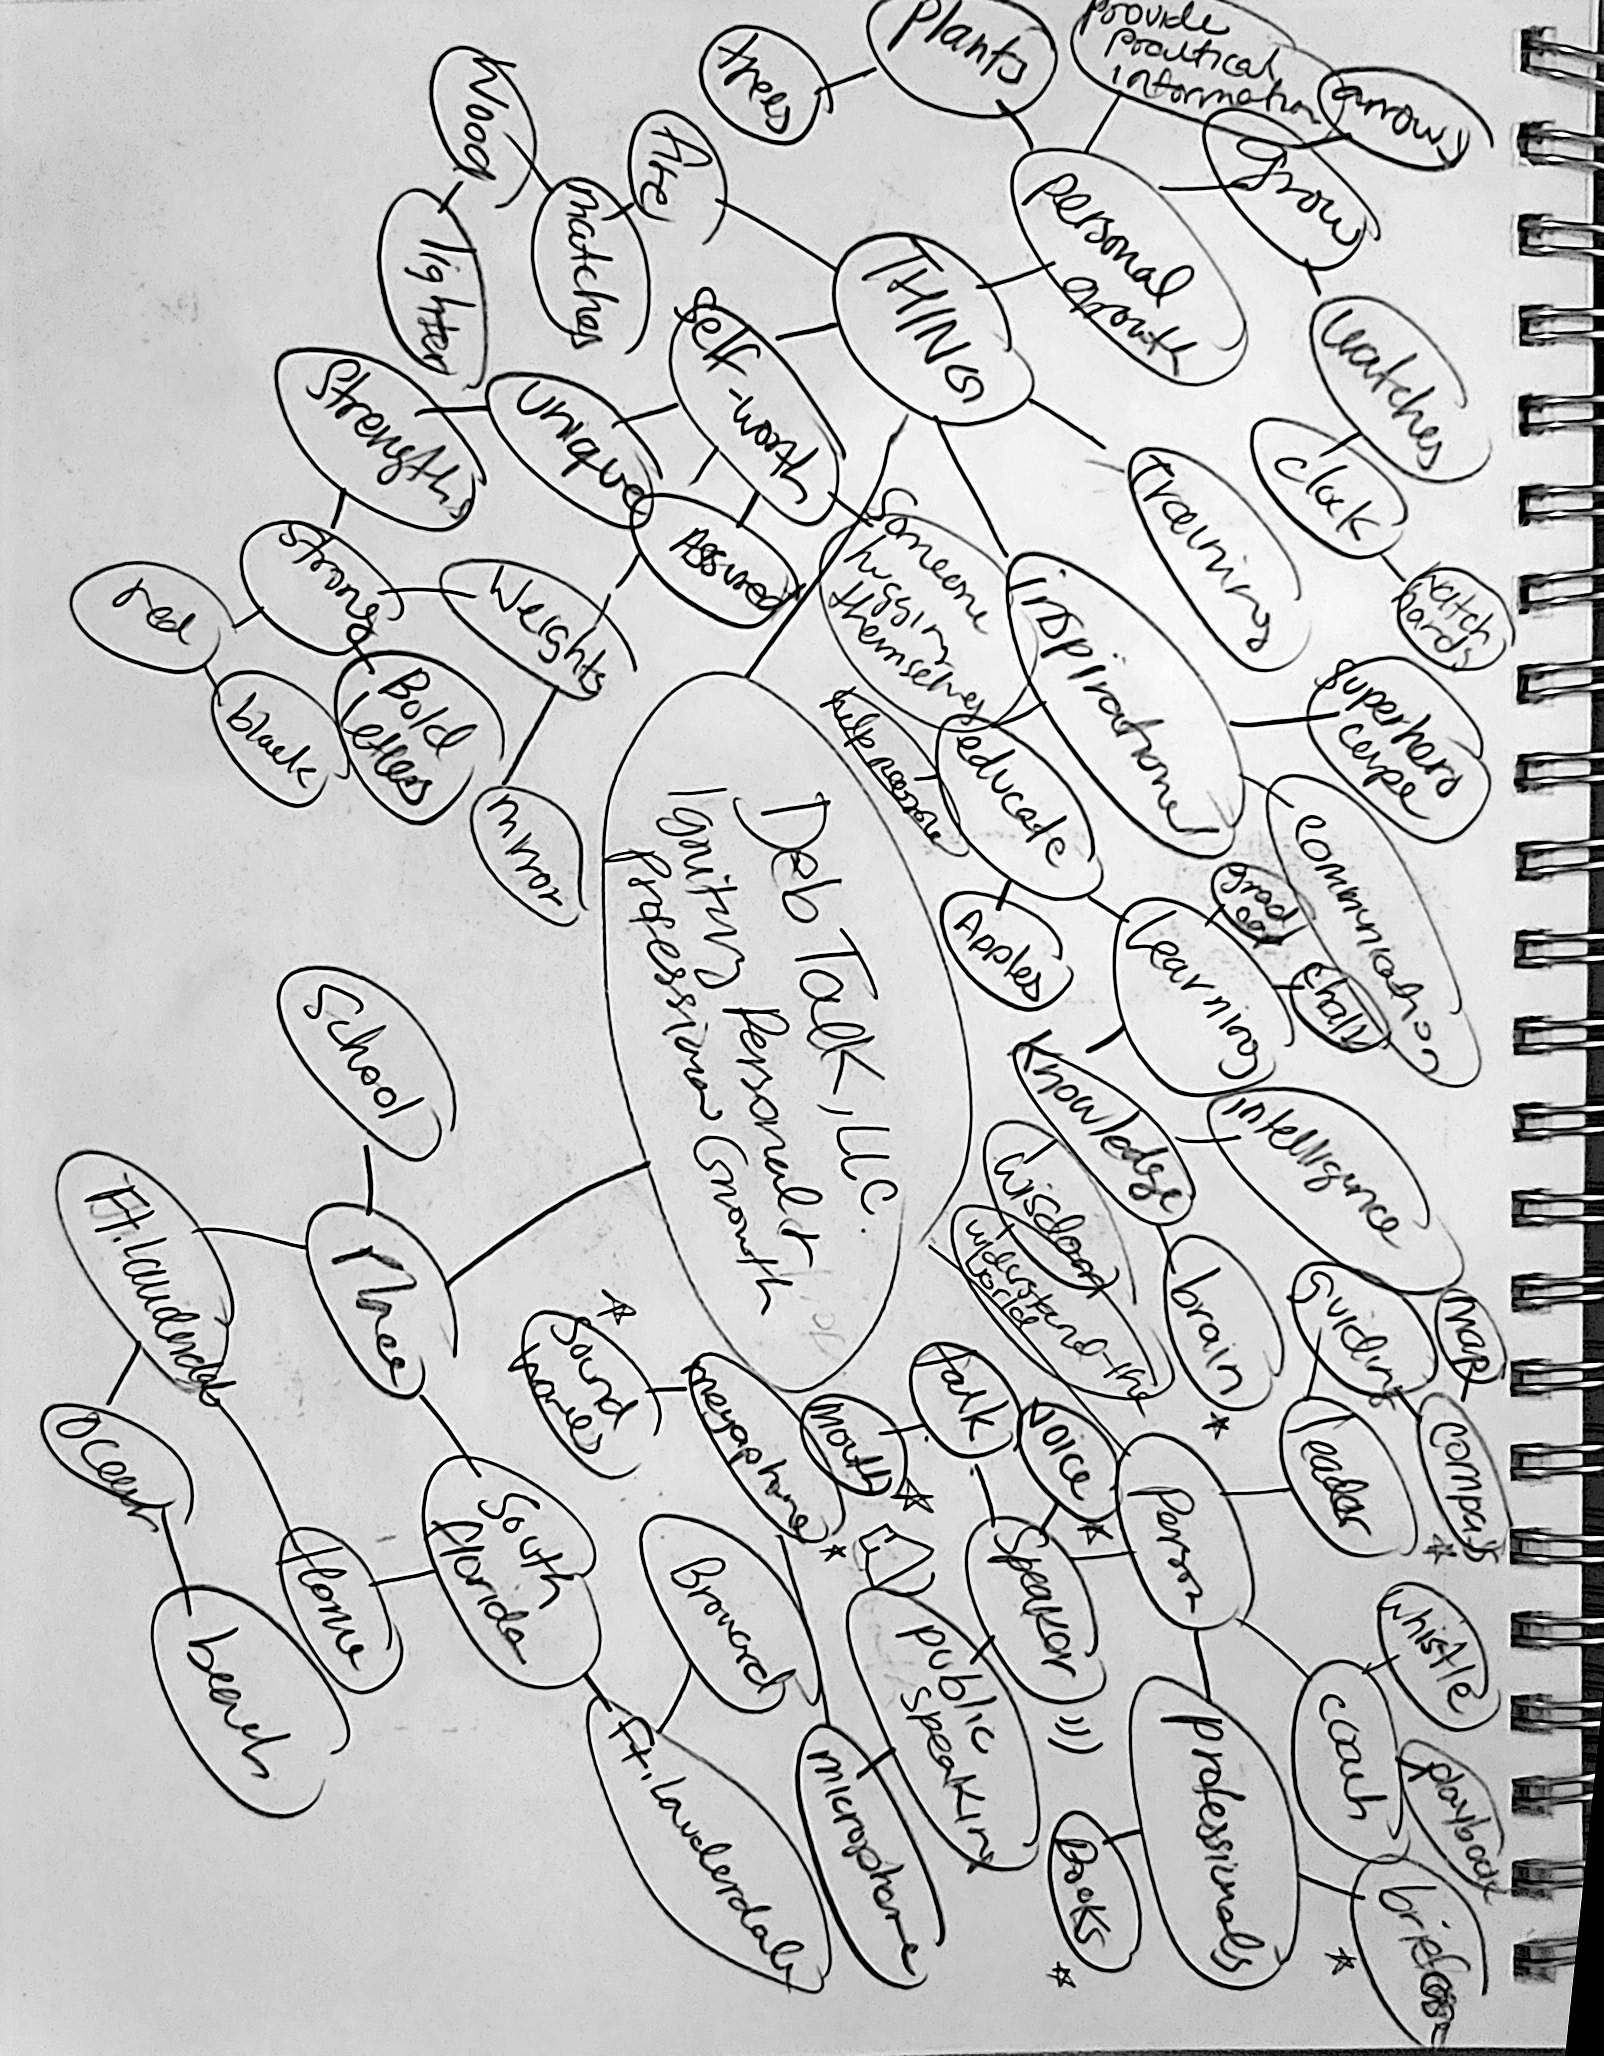 Deb Talk, LLC.
Igniting Personal &
Professional Growth
THING
personal
growth
plants
trees
provide
practical
information
grow
arrows
watches
clock
watch
hands
training
fire
matches
wood
lighter
self-worth
unique
Assured
Strengths
Strong
red
black
Bold
letters
Weights
mirror
Someone
hugging
themselves
inspirational
superhero
cape
communication
educate
Apples
learning
grad
chalk
knowledge
intelligence
wisdom
understand the
world
brain
Person
leader
guiding
map
compass
coach
whistle
playbook
professionals
Books
Speaker
voice
talk
mouth
megaphone
sound
public
speaking
microphone
Place
School
Ft. Lauderdale
ocean
beach
South
florida
Home
Broward
Ft. Lauderdale